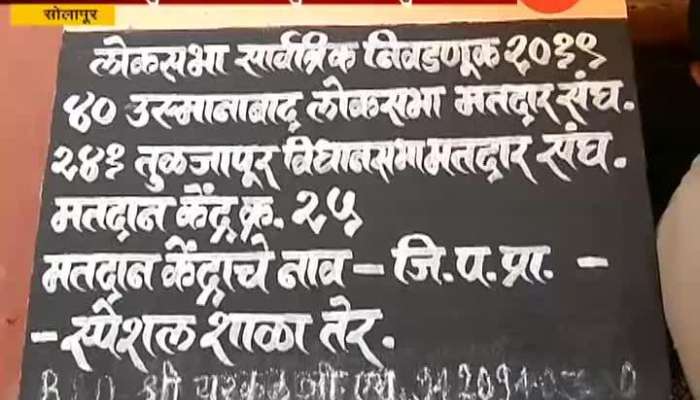 सोलापूर
लोकसभा सार्वत्रिक निवडणूक २०१९
४० उस्मानाबाद लोकसभा मतदार संघ.
२४१ तुळजापूर विधानसभा मतदार संघ.
मतदान केंद्र क्र. २५
मतदान केंद्राचे नाव – जि.प.प्रा. –
– स्पेशल शाळा तेर.